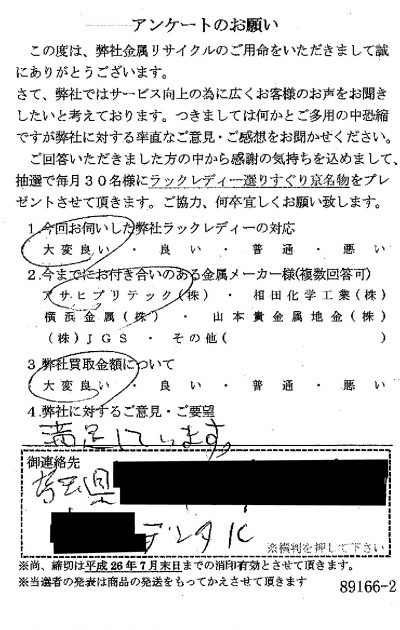 アンケートのお願い
この度は、弊社金属リサイクルのご用命をいただきまして誠
にありがとうございます。
さて、弊社ではサービス向上の為に広くお客様のお声をお聞き
したいと考えております。つきましては何かとご多用の中恐縮
ですが弊社に対する率直なご意見・ご感想をお聞かせください。
ご回答いただきました方の中から感謝の気持ちを込めまして、
抽選で毎月30名様にラックレディー選りすぐり京名物をプレ
ゼントさせて頂きます。ご協力、何卒宜しくお願い致します。
1.今回お伺いした弊社ラックレディーの対応
大変良い ・ 良い ・ 普通 ・ 悪い
2.今までにお付き合いのある金属メーカー様(複数回答可)
アサヒプリテック(株) ・ 相田化学工業(株)
横浜金属(株) ・ 山本貴金属地金(株)
(株)JGS ・ その他( )
3.弊社買取金額について
大変良い ・ 良い ・ 普通 ・ 悪い
4.弊社に対するご意見・ご要望
満足しています。
御連絡先
埼玉県
デンタル
※横判を押して下さい
※尚、締切は平成26年7月末日までの消印有効とさせて頂きます。
※当選者の発表は商品の発送をもってかえさせて頂きます
89166-2